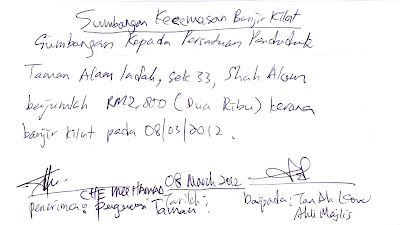 Sumbangan Kecemasan Banjir Kilat
Sumbangan Kepada Persatuan Penduduk
Taman Alam Indah, sek 33, Shah Alam
berjumlah RM2,800 (Dua Ribu) kerana
banjir kilat pada 08/03/2012.
CHE 08 March 2012
Penerima: Pengerusi Taman Tarikh: bagipada: Tan
Ahli Majlis